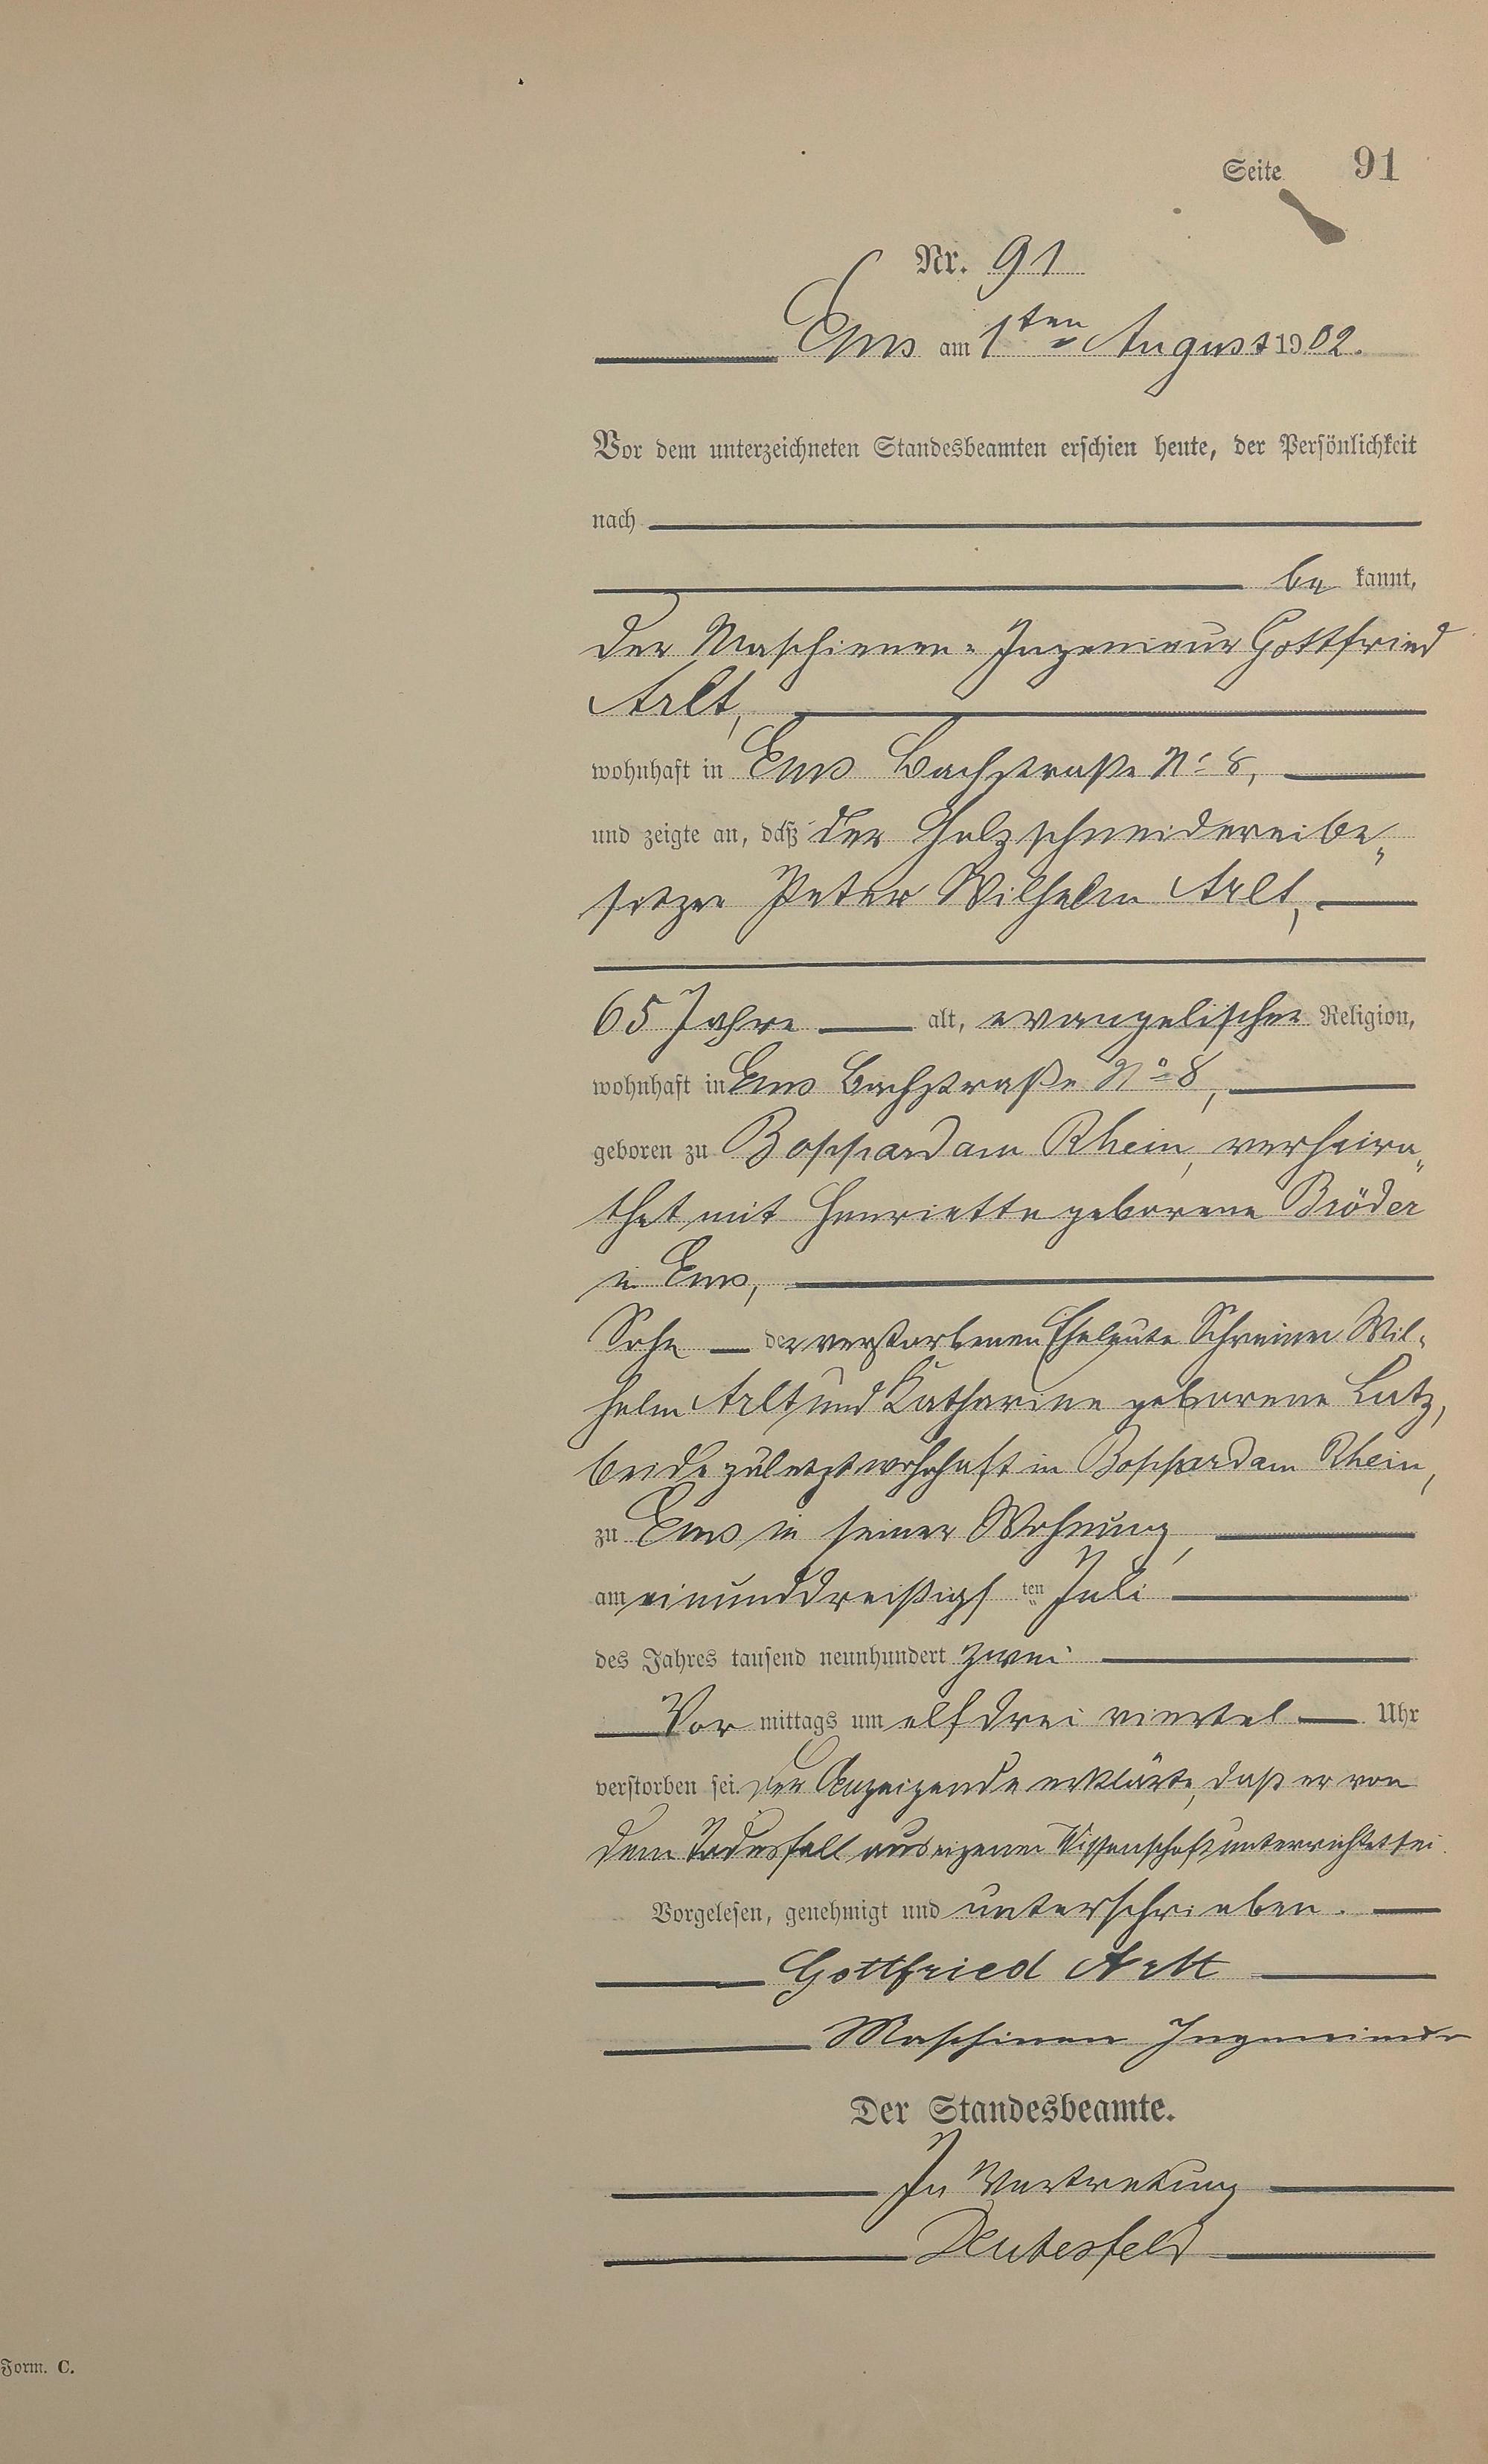 Seite 91
Nr. 91
Ems am 1ten August 1902.
Vor dem unterzeichneten Standesbeamten erschien heute, der Persönlichkeit
nach
be kannt,
der Maschienen-Ingenieur Gottfried
Arlt,
wohnhaft in Ems Bachstraße No 8,
und zeigte an, daß der Holzschneidereibe„
sitzer Peter Wilhelm Arlt,
65 Jahre alt, evangelischer Religion,
wohnhaft in Ems Bachstraße No 8,
geboren zu Boppard am Rhein, verheira„
thet mit Henriette geborene Bröder
in Ems,
Sohn der verstorbenen Eheleute Schreiner Wil-
helm Arlt und Katharine geborene Lutz,
beide zuletzt wohnhaft in Boppard am Rhein,
zu Ems in seiner Wohnung,
am einunddreißigs ten Juli
des Jahres tausend neunhundert zwei
Vor mittags um elf drei viertel Uhr
verstorben sei. Der Anzeigende erklärte, daß er von
dem Todesfall aus eigener Wissenschaft unterrichtet sei.
Vorgelesen, genehmigt und unterschrieben.
Gottfried Arlt
Maschinen Ingenieur
Der Standesbeamte.
In Vertretung
Deutesfeld
Form. C.